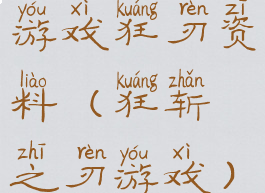 yóu xì kuáng rèn zī
游戏狂刃资
liào kuáng zhǎn
料（狂斩
zhī rèn yóu xì
之刃游戏）